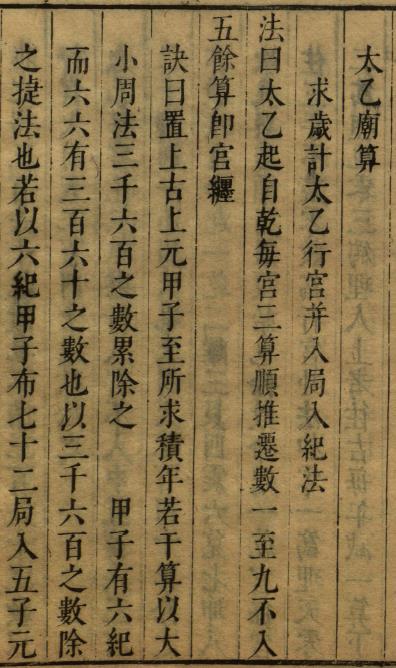 太乙廟算
求歲計太乙行宮并入局入紀法
法曰太乙起自乾每宮三算順推遷數一至九不入
五餘算卽宮纏
訣曰置上古上元甲子至所求積年若干算以大
小周法三千六百之數累除之 甲子有六紀
而六六有三百六十之數也以三千六百之數除
之捷法也若以六紀甲子布七十二局入五子元